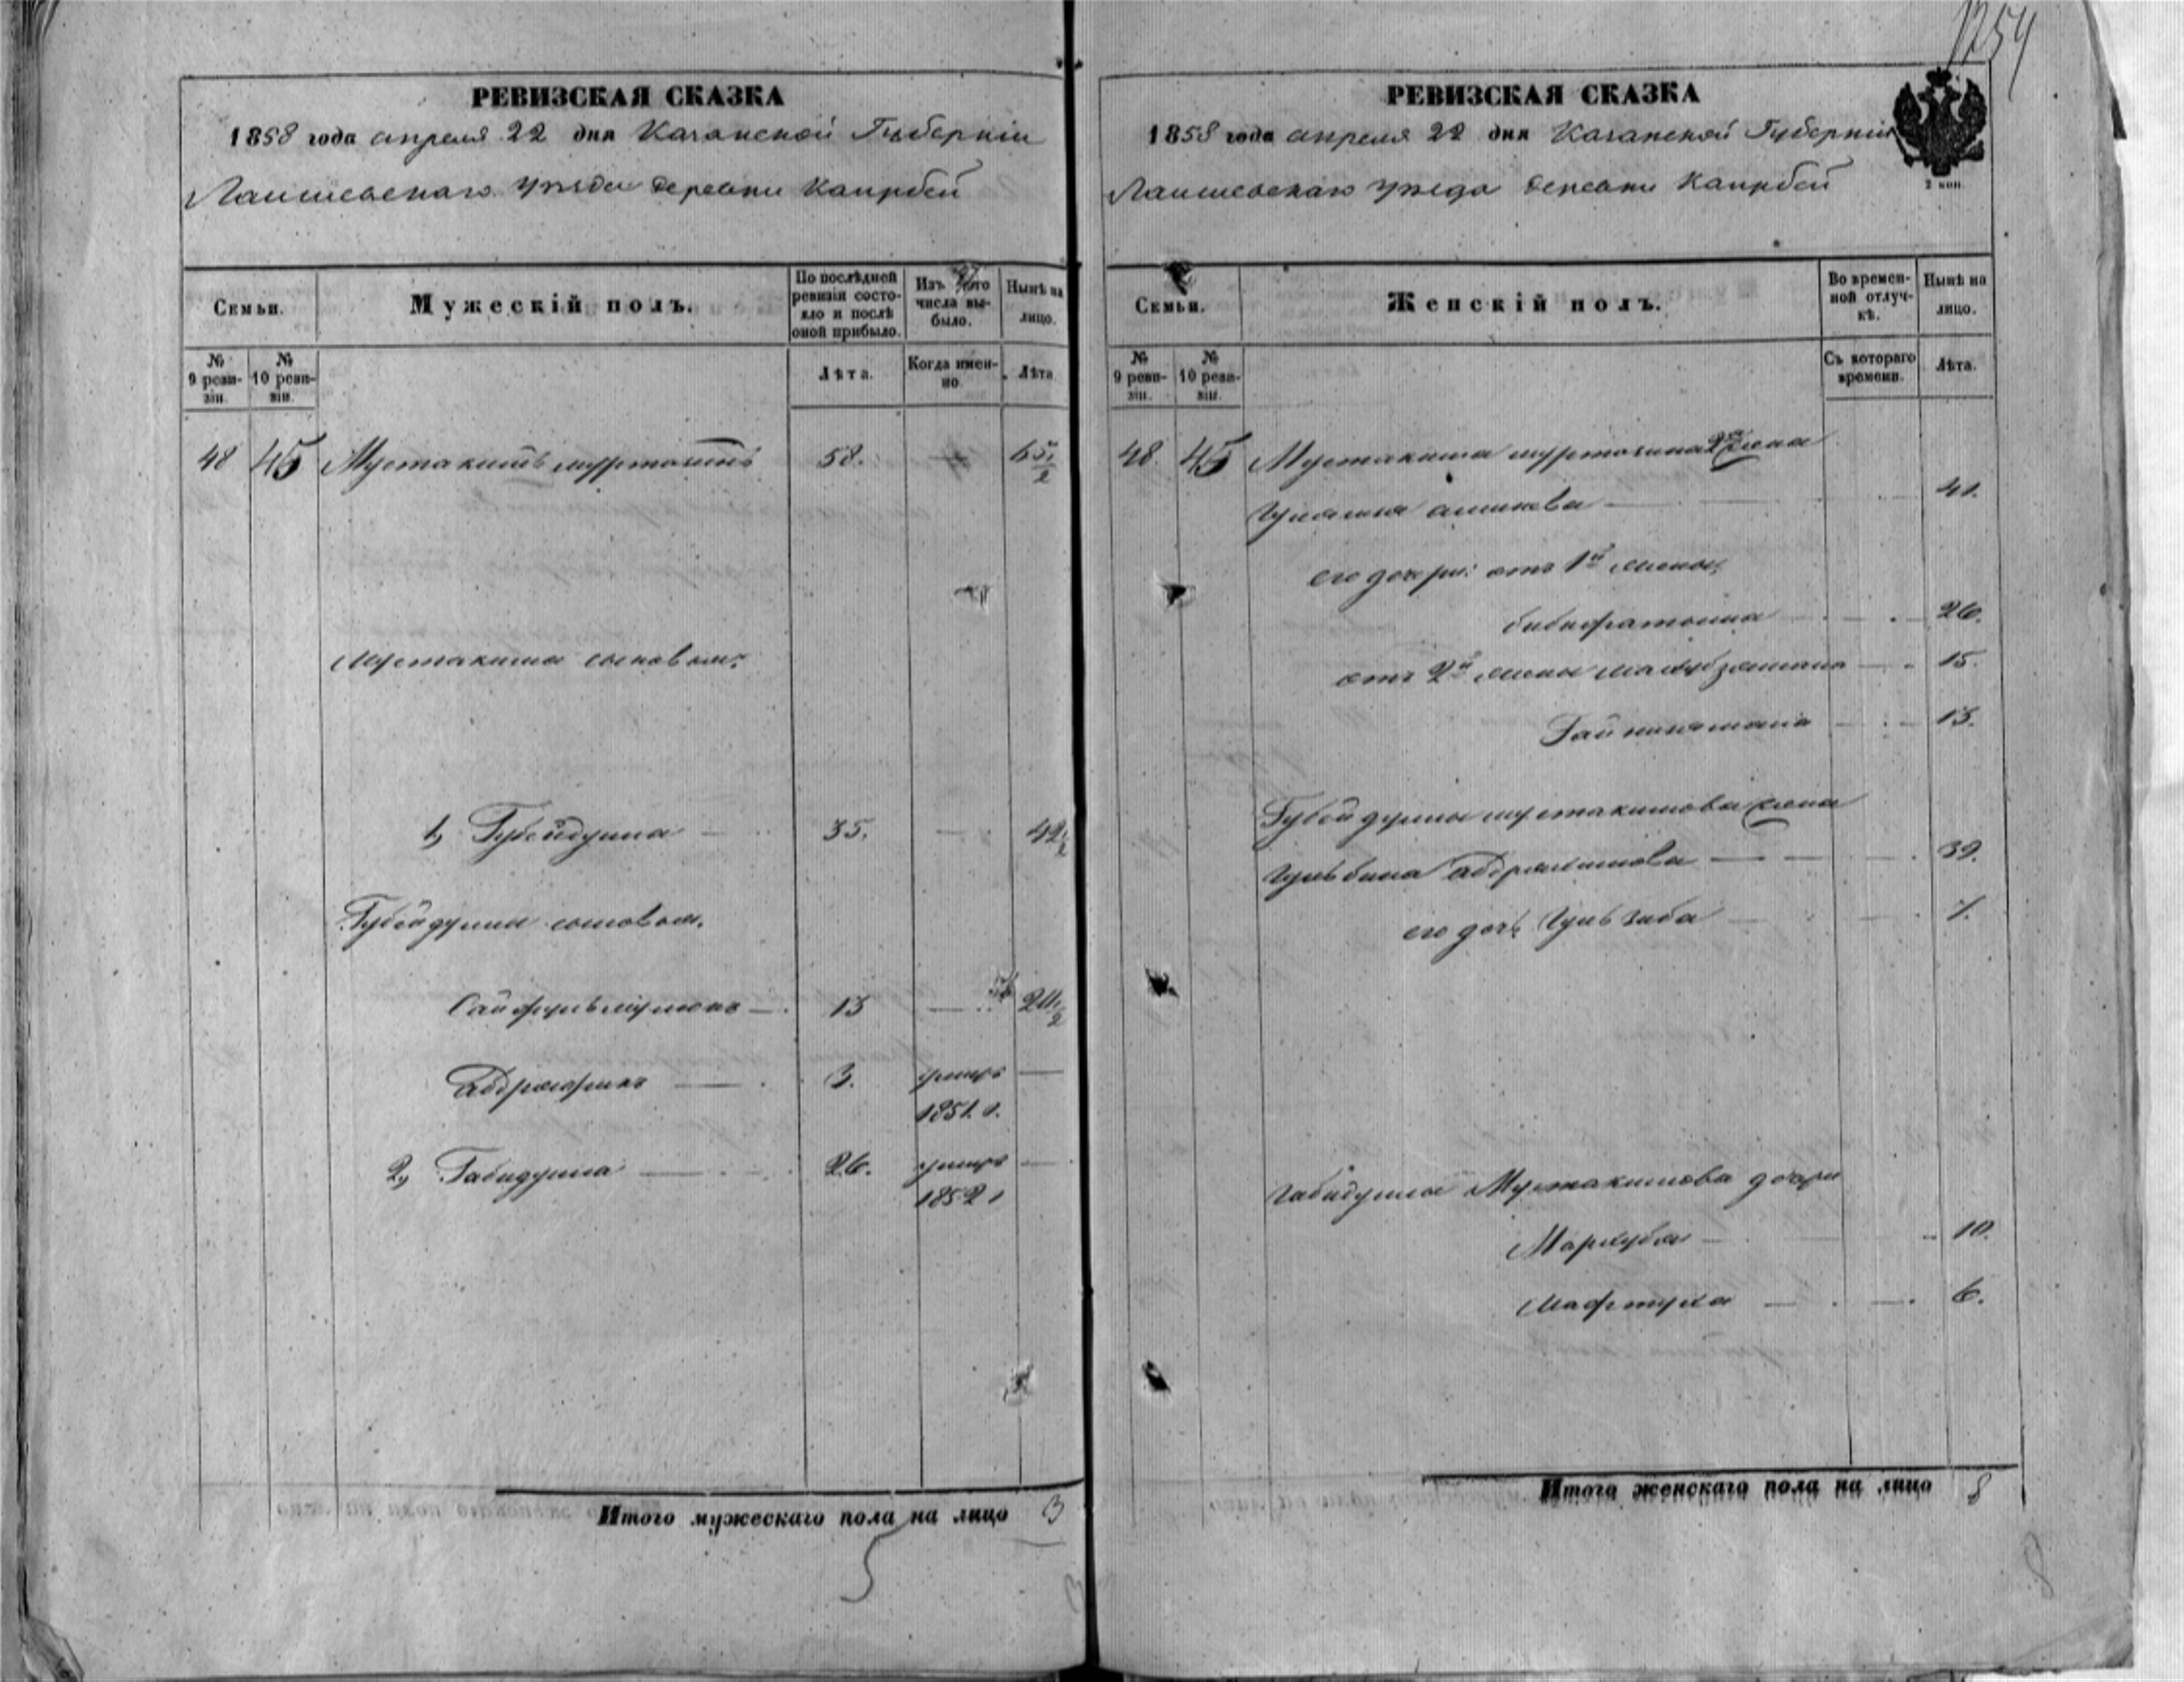 1254
РЕВИЗСКАЯ СКАЗКА
1858 года апреля 22 дня Казанской Губерніи
Лаишевскаго уезда деревни Каирбей
Семьи.
Мужескій полъ.
По послѣдней ревизіи состояло и послѣ оной прибыло.
Изъ того числа выбыло.
Нынѣ на лицо.
№ 9 ревизіи.
№ 10 ревизіи.
Лѣта.
Когда именно.
Лѣта
48 45 Мустакимъ муртазинъ 58. 65 1/2
Мустакима сыновья:
1, Губейдулла 35. 42 1/2
Губейдуллы сыновья,
Сайфульмулюкъ 13 20 1/2
Абдрафикъ 3. умеръ
1851 г.
2, Габидулла 26. умеръ
1852 г
Итого мужескаго пола на лицо 3
5
РЕВИЗСКАЯ СКАЗКА
2 коп.
1858 года апреля 22 дня Казанской Губерніи
Лаишевскаго уезда деревни Каирбей
Семьи.
Женскій полъ.
Во временной отлучкѣ.
Нынѣ на лицо.
№ 9 ревизіи.
№ 10 ревизіи.
Съ котораго времени.
Лѣта.
48. 45 Мустакима муртазина 2я жена
41.
его дочери: отъ 1й жены,
бибифатыма 26.
отъ 2й жены 15.
13.
Губейдуллы мустакимова жена
Гульбина абдрахимова 39.
его дочь 7.
Габидуллы Мустакимова дочери
Мархубя 10.
Мафтуха 6.
Итого женскаго пола на лицо 8
8